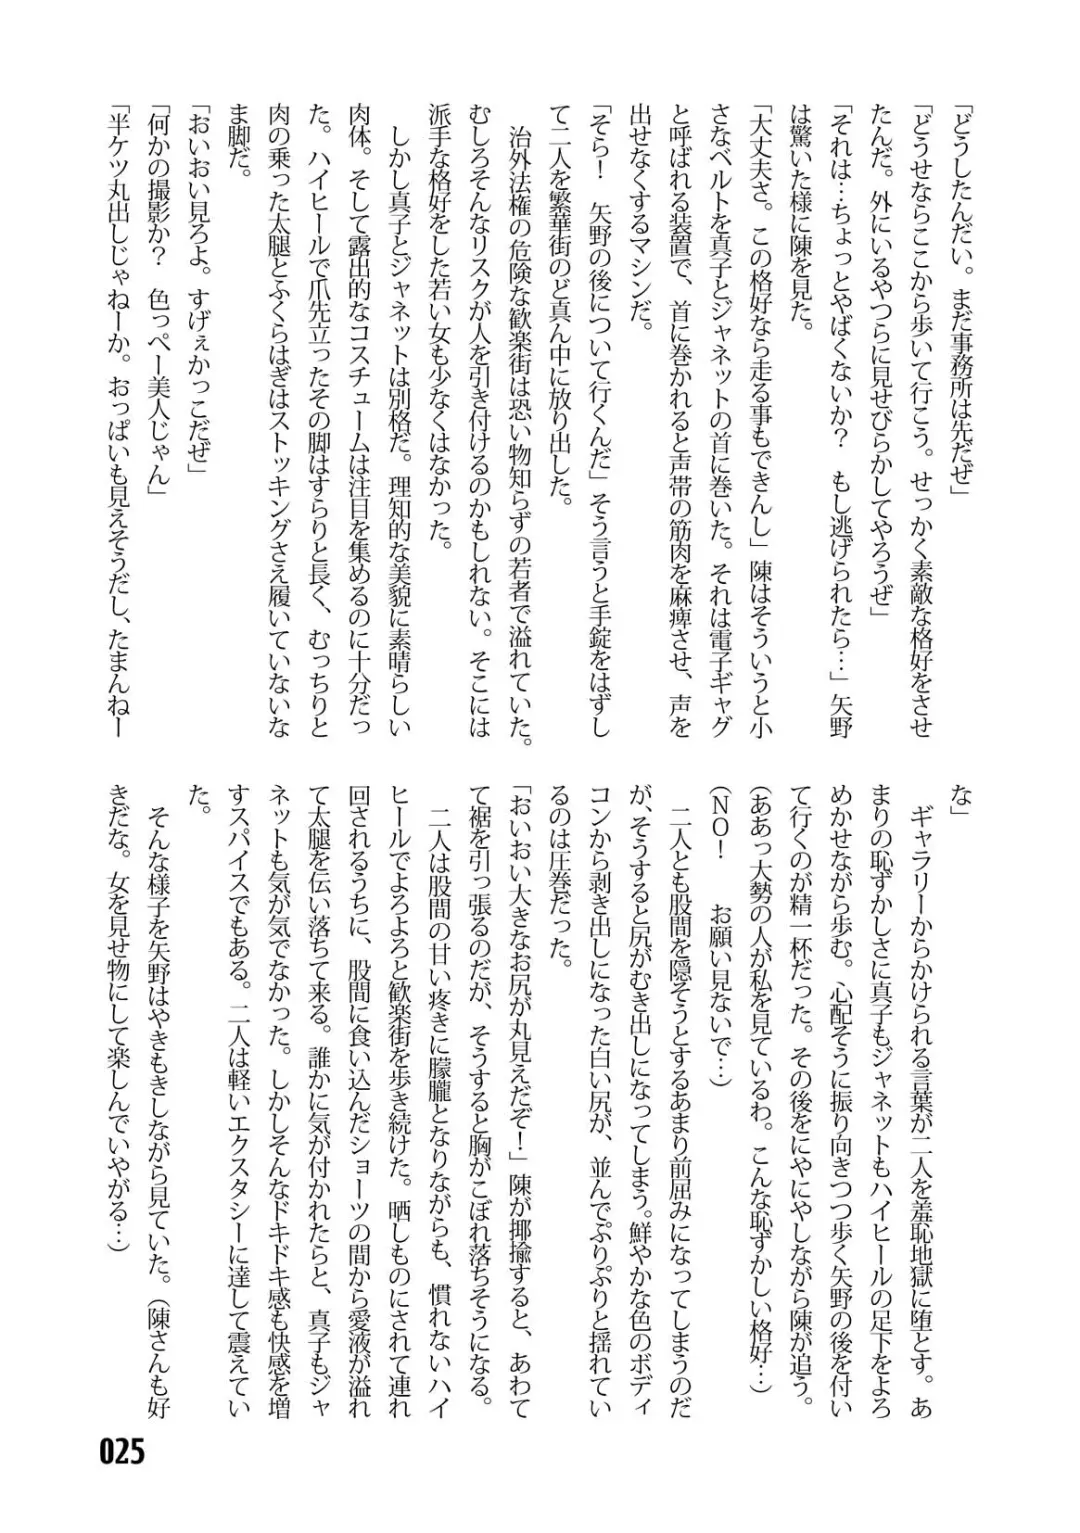 「どうしたんだい。まだ事務所は先だぜ」
「どうせならここから歩いて行こう。せっかく素敵な格好をさせ
たんだ。外にいるやつらに見せびらかしてやろうぜ」
「それは…ちょっとやばくないか？　もし逃げられたら…」矢野
は驚いた様に陳を見た。
「大丈夫さ。この格好なら走る事もできんし」陳はそういうと小
さなベルトを真子とジャネットの首に巻いた。それは電子ギャグ
と呼ばれる装置で、首に巻かれると声帯の筋肉を麻痺させ、声を
出せなくするマシンだ。
「そら！　矢野の後について行くんだ」そう言うと手錠をはずし
て二人を繁華街のど真ん中に放り出した。
　治外法権の危険な歓楽街は恐い物知らずの若者で溢れていた。
むしろそんなリスクが人を引き付けるのかもしれない。そこには
派手な格好をした若い女も少なくはなかった。
　しかし真子とジャネットは別格だ。理知的な美貌に素晴らしい
肉体。そして露出的なコスチュームは注目を集めるのに十分だっ
た。ハイヒールで爪先立ったその脚はすらりと長く、むっちりと
肉の乗った太腿とふくらはぎはストッキングさえ履いていないな
ま脚だ。
「おいおい見ろよ。すげぇかっこだぜ」
「何かの撮影か？　色っぺー美人じゃん」
「半ケツ丸出しじゃねーか。おっぱいも見えそうだし、たまんねー
な」
　ギャラリーからかけられる言葉が二人を羞恥地獄に堕とす。あ
まりの恥ずかしさに真子もジャネットもハイヒールの足下をよろ
めかせながら歩む。心配そうに振り向きつつ歩く矢野の後を付い
て行くのが精一杯だった。その後をにやにやしながら陳が追う。
（ああっ大勢の人が私を見ているわ。こんな恥ずかしい格好…）
（ＮＯ！　お願い見ないで…）
　二人とも股間を隠そうとするあまり前屈みになってしまうのだ
が、そうすると尻がむき出しになってしまう。鮮やかな色のボディ
コンから剥き出しになった白い尻が、並んでぷりぷりと揺れてい
るのは圧巻だった。
「おいおい大きなお尻が丸見えだぞ！」陳が揶揄すると、あわて
て裾を引っ張るのだが、そうすると胸がこぼれ落ちそうになる。
　二人は股間の甘い疼きに朦朧となりながらも、慣れないハイ
ヒールでよろよろと歓楽街を歩き続けた。晒しものにされて連れ
回されるうちに、股間に食い込んだショーツの間から愛液が溢れ
て太腿を伝い落ちて来る。誰かに気が付かれたらと、真子もジャ
ネットも気が気でなかった。しかしそんなドキドキ感も快感を増
すスパイスでもある。二人は軽いエクスタシーに達して震えてい
た。
　そんな様子を矢野はやきもきしながら見ていた。（陳さんも好
きだな。女を見せ物にして楽しんでいやがる…）
025